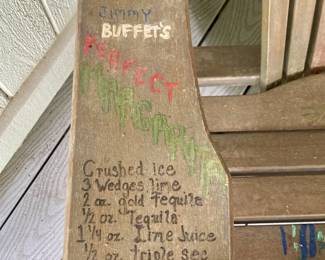 JIMMY
BUFFET'S
PERFECT
MARGARITA
Crushed ice
3 Wedges lime
2 oz. gold Tequila
1/2 oz. Tequila
1 1/4 oz. Lime Juice
1/2 oz. triple sec